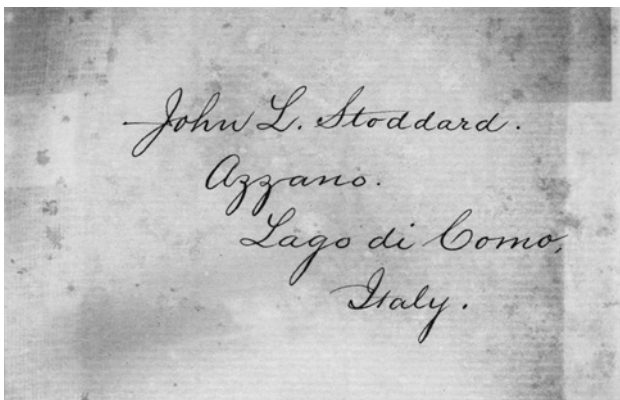 John L. Stoddard.
Azzano.
Lago di Como,
Italy.